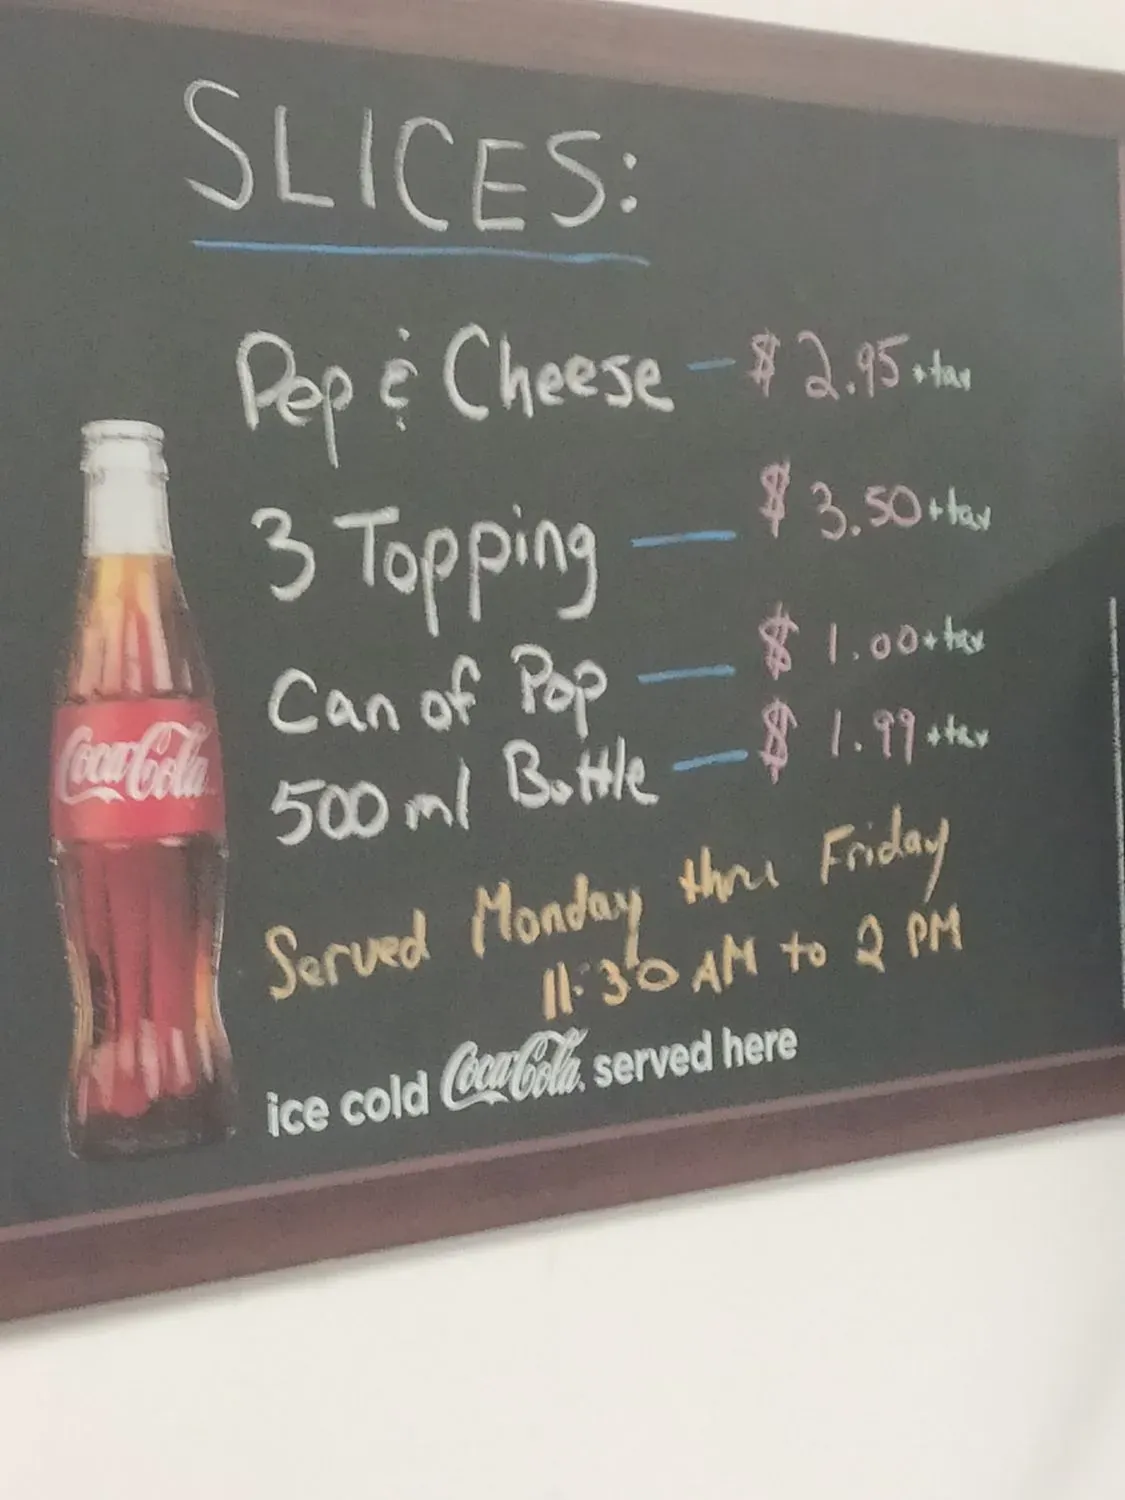 SLICES:
Pep & Cheese - $2.95 +tax
3 Topping - $3.50 +tax
Can of Pop - $1.00 +tax
500 ml Bottle - $1.99 +tax
Coca-Cola
Served Monday thru Friday
11:30 AM to 2 PM
ice cold Coca-Cola. served here